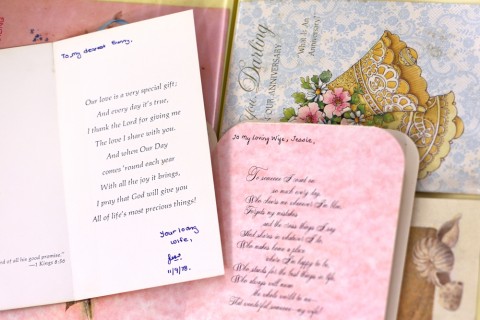 To my dearest
Our love is a very special gift;
And every day it's true,
I thank the Lord for giving me
The love I share with you.
And when Our Day
comes 'round each year
With all the joy it brings,
I pray that God will give you
All of life's most precious things!
Your loving
wife,
11/9/78
d of all his good promise."
—1 Kings 8:56
Darling
OUR ANNIVERSARY
What Is An
Anniversary?
To my loving Wife, Jessie,
To someone I need so
in such every way,
Who cheers me whenever I'm blue,
Forgets my mistakes
and the cross things I say
And shares in whatever I do.
Who makes home a place
where I'm happy to be,
Who for the best things in life,
Who always will mean
the whole world to me—
That wonderful someone - my wife!